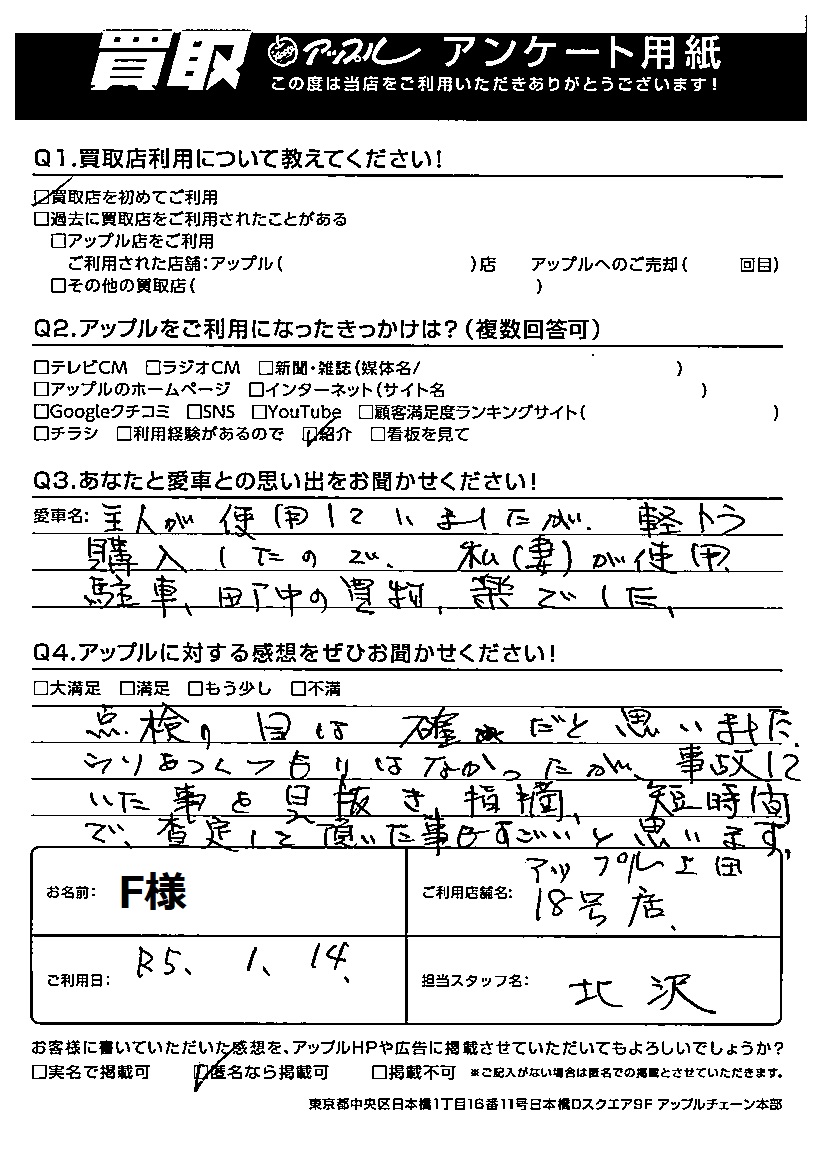 買取 アップル アンケート用紙
この度は当店をご利用いただきありがとうございます!
Q1.買取店利用について教えてください!
☑買取店を初めてご利用
□過去に買取店をご利用されたことがある
□アップル店をご利用
ご利用された店舗:アップル( )店 アップルへのご売却( 回目)
□その他の買取店( )
Q2.アップルをご利用になったきっかけは?(複数回答可)
□テレビCM □ラジオCM □新聞・雑誌(媒体名/ )
□アップルのホームページ □インターネット(サイト名 )
□Googleクチコミ □SNS □YouTube □顧客満足度ランキングサイト( )
□チラシ □利用経験があるので ☑紹介 □看板を見て
Q3.あなたと愛車との思い出をお聞かせください!
愛車名: 主人が使用していましたが、軽トラ
購入したので、私(妻)が使用
駐車、町中の買物、楽でした、
Q4.アップルに対する感想をぜひお聞かせください!
□大満足 □満足 □もう少し □不満
点検の目は確かだと思いました
つもりはなかったが、事故して
いた事を見抜き、指摘、短時間
で、査定して頂いた事もすごいと思います。
お名前: F様
ご利用店舗名: アップル上田
18号店、
ご利用日: R5、1、14、
担当スタッフ名: 北沢
お客様に書いていただいた感想を、アップルHPや広告に掲載させていただいてもよろしいでしょうか?
□実名で掲載可 ☑匿名なら掲載可 □掲載不可 ※ご記入がない場合は匿名での掲載とさせていただきます。
東京都中央区日本橋1丁目16番11号日本橋Dスクエア9F アップルチェーン本部